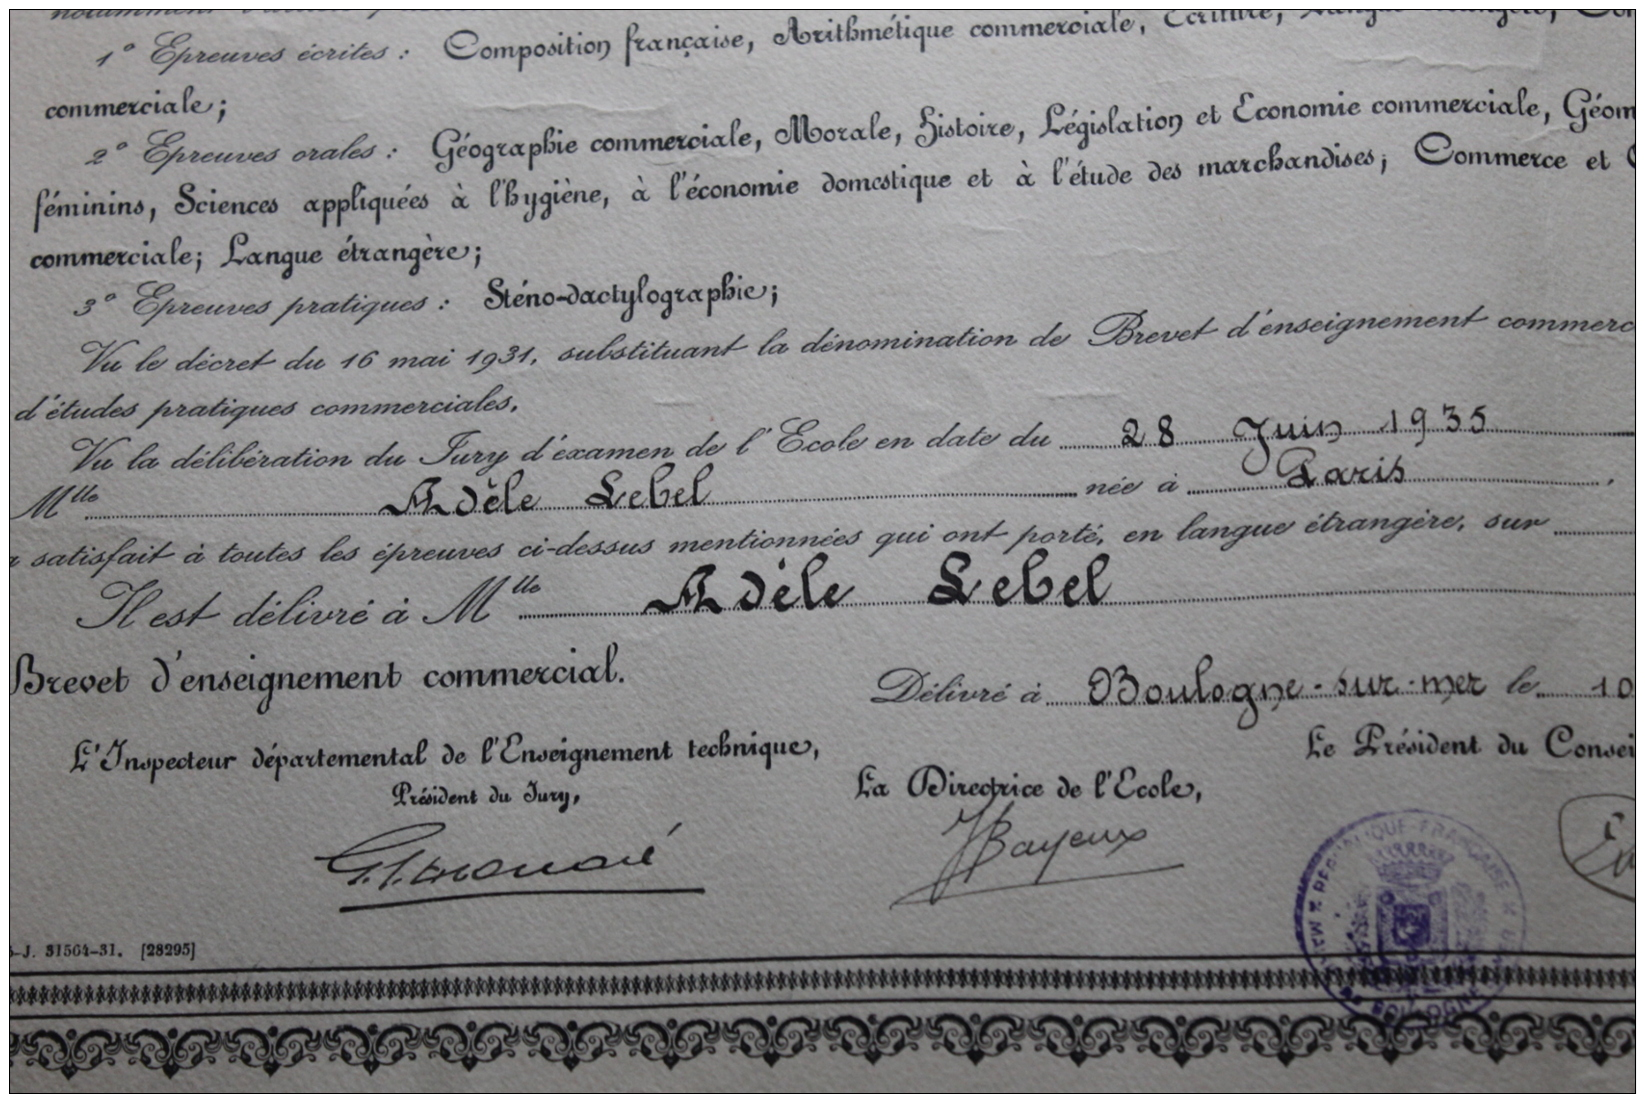 notamment
1° Epreuves écrites : Composition française, Arithmétique commerciale, Ecriture, Langue étrangère,
commerciale ;
2° Epreuves orales : Géographie commerciale, Morale, Histoire, Législation et Economie commerciale, Géom
féminins, Sciences appliquées à l'hygiène, à l'économie domestique et à l'étude des marchandises ; Commerce et
commerciale ; Langue étrangère ;
3° Epreuves pratiques : Sténo-dactylographie ;
Vu le décret du 16 mai 1931, substituant la dénomination de Brevet d'enseignement commerc
d'études pratiques commerciales.
Vu la délibération du Jury d'examen de l'Ecole en date du 28 Juin 1935
Mlle Adèle Lebel née à Paris,
a satisfait à toutes les épreuves ci-dessus mentionnées qui ont porté, en langue étrangère, sur
Il est délivré à Mlle Adèle Lebel
Brevet d'enseignement commercial.
Délivré à Boulogne-sur-mer le 10
L'Inspecteur départemental de l'Enseignement technique,
Président du Jury,
La Directrice de l'Ecole,
Le Président du Consei
JBayeux
RÉPUBLIQUE FRANÇAISE
BOULOGNE
-J. 31564-31. [28295]